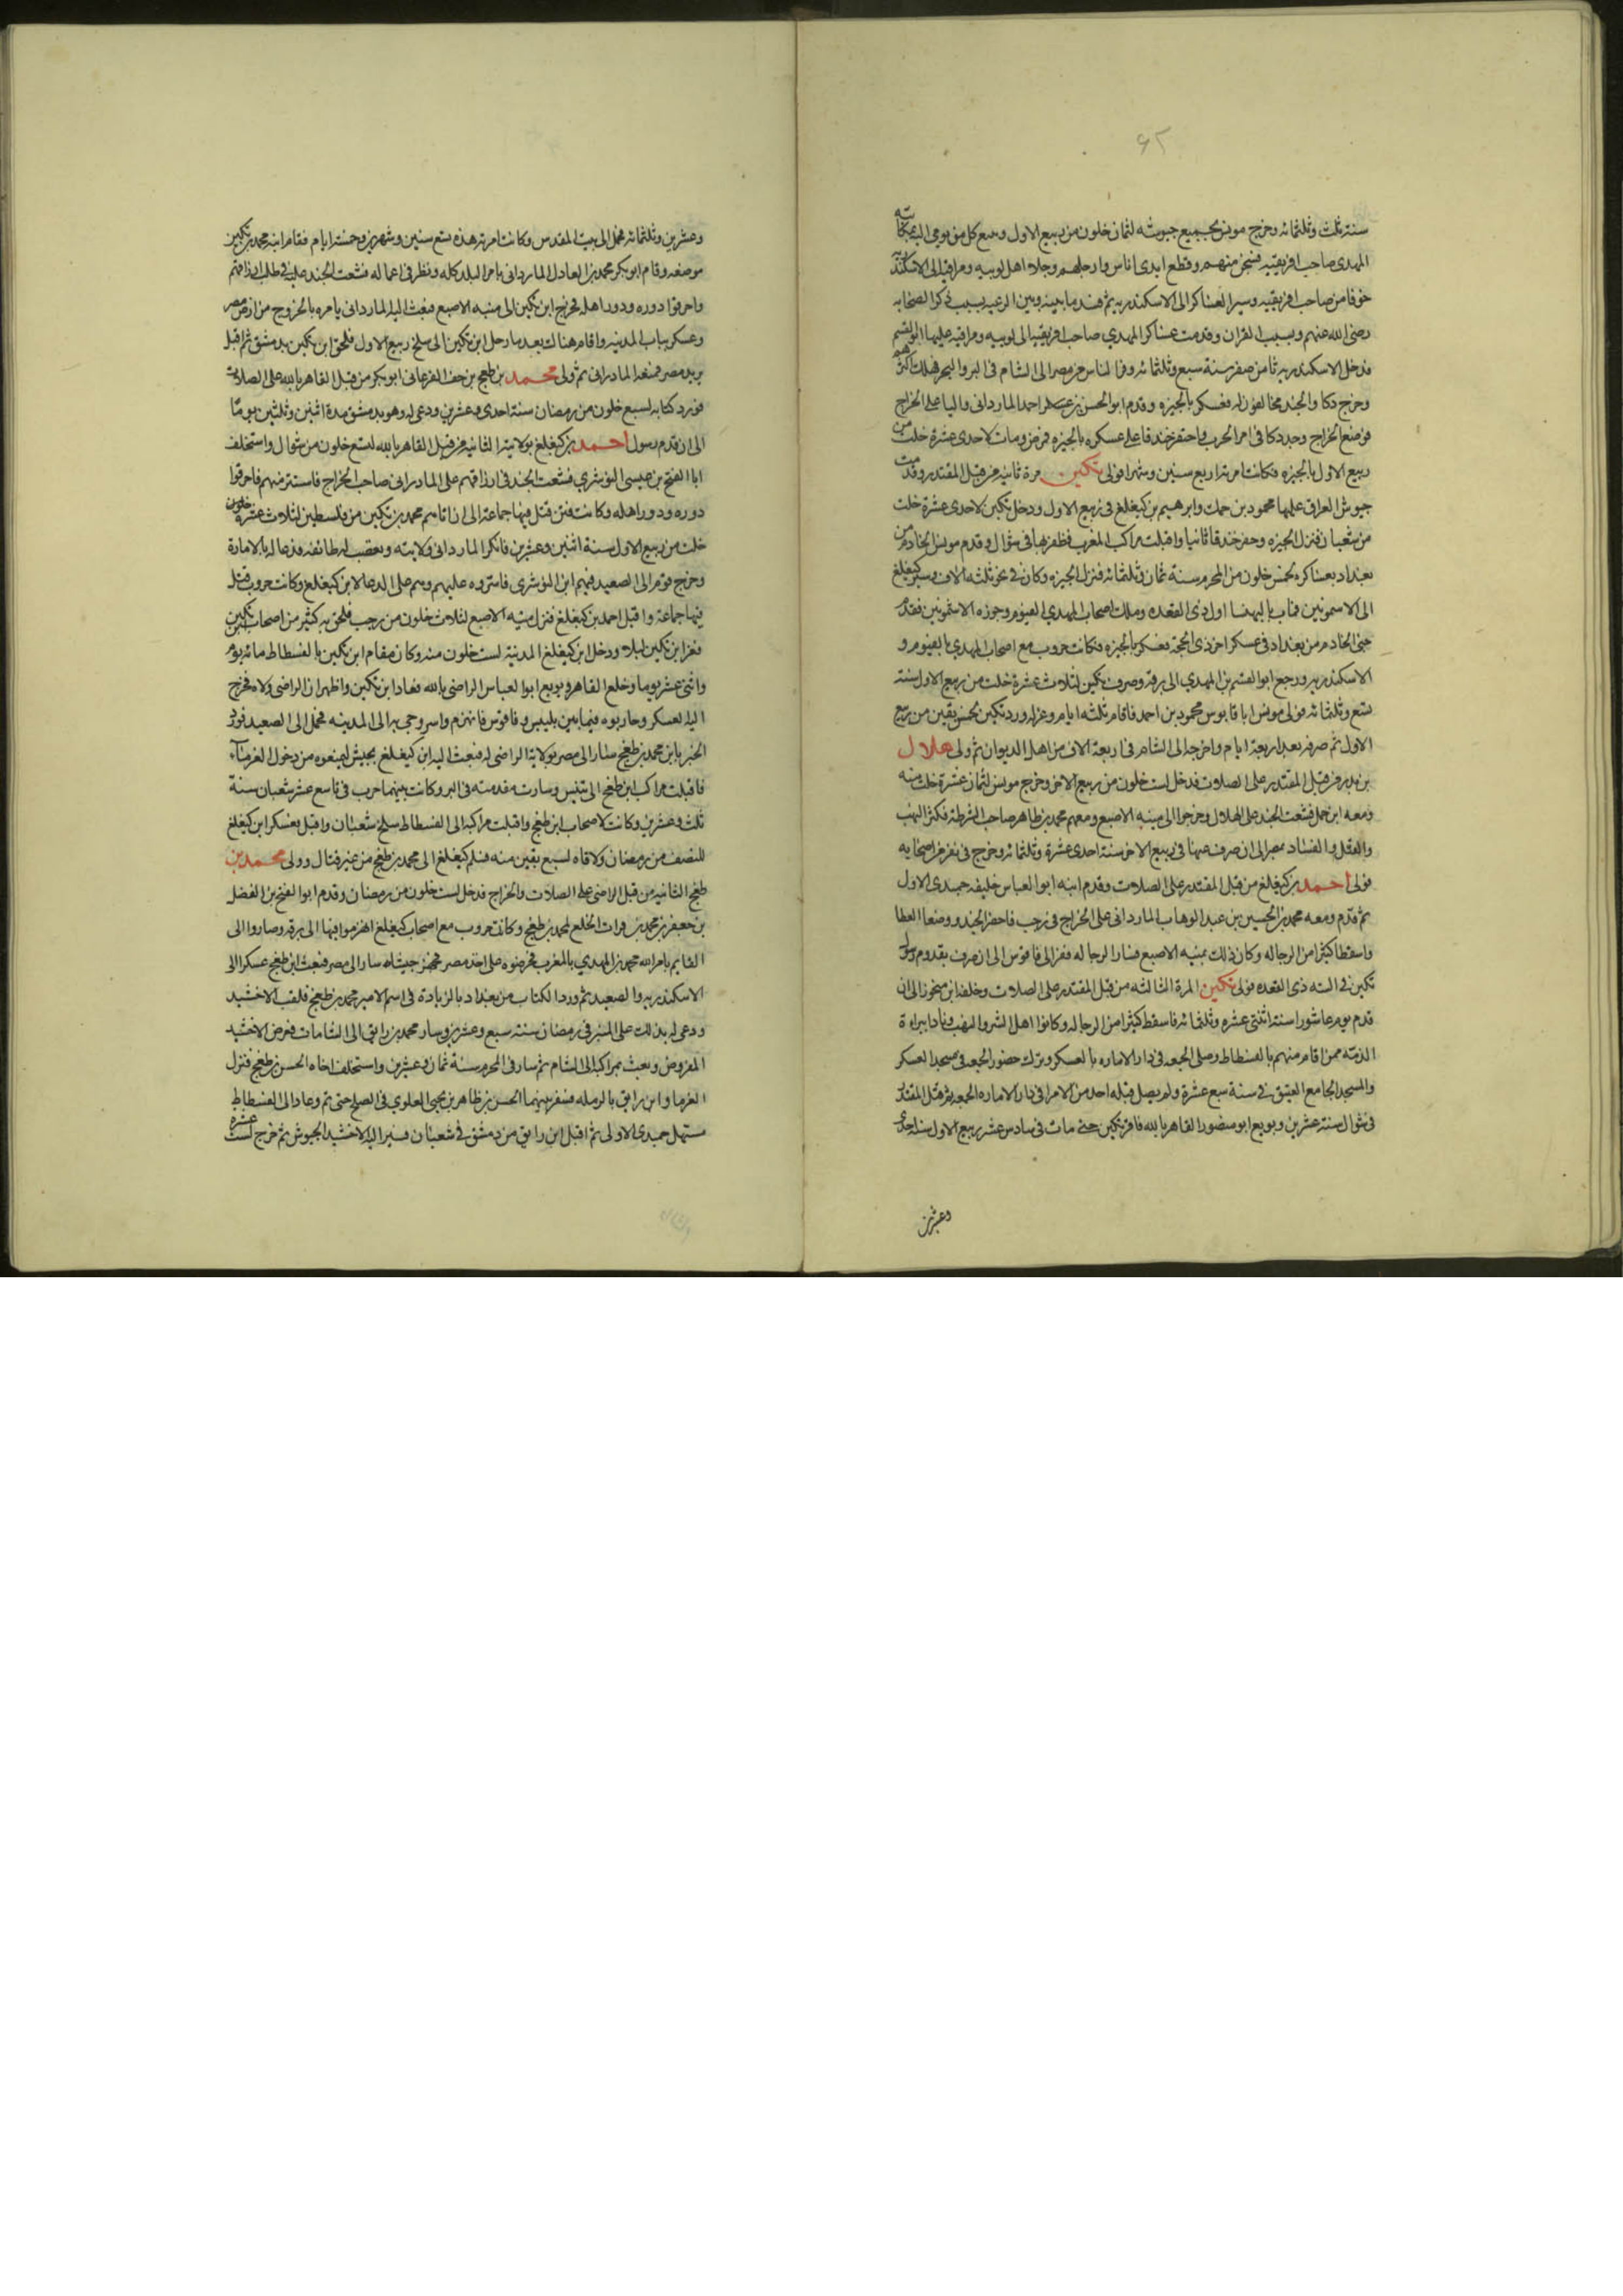 سنة ثلث وثلثمائه وخرج مونس بجميع جيوشه لثمان خلون من ربيع الاول وتتبع كل من يومى اليه بمكاتبة
المهدى صاحب افريقيه فسجن منهم وقطع ايدى اناس وارجلهم وجلا اهل لوبيه ومراقيه الى الاسكندرية
خوفا من صاحب افريقيه وسير العساكر الى الاسكندريه ثم فسد ما بينه وبين الرعيه بسبب ذكر الصحابه
رضى الله عنهم وبسبب القران وقدمت عساكر المهدي صاحب افريقيه الى لوبيه ومراقيه عليها ابو القسم
فدخل الاسكندريه ثامن صفر سنة سبع وثلثمائه وفر الناس من مصر الى الشام فى البر والبحر فهلك اكثرهم
وخرج دكا والجند مخالفون له فعسكر بالجيزه وقدم ابو الحسن بن احمد الماردانى واليا على الخراج
فوضع الخراج وجد دكا فى امر الحرب واحتفر خندقا على عسكره بالجيزه فمرض ومات لاحدى عشرة خلت من
ربيع الاول بالجيزه فكانت امرته اربع سنين وشهرا فولى تكين مرة ثانيه من قبل المقتدر وقدمت
جيوش العراق عليها محمود بن حمك وابرهيم بن كيغلغ فى ربيع الاول ودخل تكين لاحدى عشرة خلت
من شعبان فنزل الجيزه وحفر خندقا ثانيا واقبلت مراكب المغرب فظفر بها فى شوال وقدم مونس الخادم من
بغداد بعساكره لخمس خلون من المحرم سنة ثمان وثلثمائه فنزل الجيزه وكان فى نحو ثلثه الاف وسير كيغلغ
الى الاسمونين فمات بالبهنسا اول ذى القعده وملك اصحاب المهدي الفيوم وجزيره الاشمونين فقدم
جنى الخادم من بغداد فى عسكر اخر ذى الحجة فعسكر بالجيزه فكانت حروب مع اصحاب المهدي بالفيوم و
الاسكندريه ورجع ابو القسم بن المهدي الى برقه وصرف تكين لثلاث عشرة خلت من ربيع الاول سنة
تسع وثلثمائه فولى مونس ابا قابوس محمود بن احمد فاقام ثلثه ايام وعزله ورد تكين لخمس بقين من ربيع
الاول ثم صرفه بعد اربعة ايام واخرجه الى الشام فى اربعة الاف من اهل الديوان ثم ولى هلال
بن بدر من قبل المقتدر على الصلات فدخل لست خلون من ربيع الاخر وخرج مونس لثمان عشرة خلت منه
ومعه ابن حمك فشغب الجند على الهلال وخرجوا الى منيه الاصبع ومعهم محمد بن طاهر صاحب الشرطة فكثر النهب
والقتل والفساد بمصر الى ان صرف عنها فى ربيع الاخر سنة احدى عشرة وثلثمائه وخرج فى نفر من اصحابه
فولى احمد بن كيغلغ من قبل المقتدر على الصلات وقدم ابنه ابو العباس خليفه جمدى الاول
ثم قدم ومعه محمد بن الحسين بن عبد الوهاب الماردانى على الخراج فى رجب فاحضر الجند ووضعا العطا
واسقطا كثيرا من الرجاله وكان ذلك بمنيه الاصبع فثار الرجاله ففر الى فاقوس الى ان صرف بقدوم رسول
تكين فى ذى القعده فولى تكين المرة الثالثه من قبل المقتدر على الصلات وخلفه ابن منجور الى ان
قدم يوم عاشورا سنة اثنتى عشره وثلثمائه فاسقط كثيرا من الرجاله وكانوا اهل الشر والنهب ونادا ببراءة
الذمه ممن اقام منهم بالفسطاط وصلى الجمعه فى دار الاماره بالعسكر وترك حضور الجمعه فى مسجد العسكر
والمسجد الجامع العتيق فى سنة سبع عشرة ولم يصل قبله احد من الامرا فى دار الاماره الجمعه ثم قتل المقتدر
فى شوال سنة عشرين وبويع ابو منصور القاهر بالله فاقر تكين حتى مات فى سادس عشر ربيع الاول سنة احدى
وعشرين
وعشرين وثلثمائه فحمل الى بيت المقدس وكانت امرته هذه تسع سنين وشهرين وخمسة ايام فقام ابنه محمد بن تكين
موضعه وقام ابو بكر محمد بن العادل الماردانى بامر البلد كله ونظر فى اعماله فشغب الجند عليه فى طلب ارزاقهم
واحرقوا دوره ودور اهله فخرج ابن تكين الى منيه الاصبع فبعث اليه الماردانى يامره بالخروج من ارض مصر
وعسكر بباب المدينه واقام هناك بعد ما رحل ابن تكين الى سلخ ربيع الاول فلحق ابن تكين بدمشق ثم اقبل
يريد مصر فمنعه المادرانى ثم ولى محمد بن طغج بن جف الفرغانى ابو بكر من قبل القاهر بالله على الصلات
فورد كتابه لسبع خلون من رمضان سنة احدى وعشرين ودعى له وهو بدمشق مدة اثنين وثلثين يوما
الى ان قدم رسول احمد بن كيغلغ بولايته الثانيه من قبل القاهر بالله لتسع خلون من شوال واستخلف
ابا الفتح بن عيسى النوشري فشغب الجند فى ارزاقهم على المادرانى صاحب الخراج فاستتر منهم فاحرقوا
دوره ودور اهله وكانت فتن قتل فيها جماعة الى ان اتاهم محمد بن تكين من فلسطين لثلاث عشرة
خلت من ربيع الاول سنة اثنين وعشرين فانكر الماردانى ولايته وتعصب له طائفه فدعا له بالامارة
وخرج قوم الى الصعيد فيهم ابن النوشرى فامروه عليهم وهم على الدعا لابن كيغلغ وكانت حروب قتل
فيها جماعة واقبل احمد بن كيغلغ فنزل منيه الاصبع لثلاث خلون من رجب فلحق به كثير من اصحاب تكين
ففر ابن تكين ليلا ودخل ابن كيغلغ المدينة لست خلون منه وكان مقام ابن تكين بالفسطاط مائه يوم
واثنى عشر يوما وخلع القاهر وبويع ابو العباس الراضى بالله فعاد ابن تكين واظهر ان الراضى ولاه فخرج
اليه العسكر وحاربوه فيما بين بلبيس وفاقوس فانهزم واسر وجى به الى المدينه فحمل الى الصعيد فورد
الخبر بان محمد بن طغج سار الى مصر بولاية الراضى له فبعث اليه ابن كيغلغ بجيش ليمنعوه من دخول الفرما
فاقبلت مراكب ابن طغج الى تنيس وسارت مقدمته فى البر وكانت بينهما حرب فى تاسع عشر شعبان سنة
ثلث وعشرين وكانت لاصحاب ابن طغج واقبلت مراكبه الى الفسطاط سلخ شعبان واقبل بعسكر ابن كيغلغ
للنصف من رمضان ولاقاه لسبع بقين منه فسلم كيغلغ الى محمد بن طغج من غير قتال وولى محمد بن
طغج الثانيه من قبل الراضى على الصلات والخراج فدخل لست خلون من رمضان وقدم ابو الفتح بن الفضل
بن جعفر بن محمد بن فرات الخلع لمحمد بن طغج وكانت حروب مع اصحاب كيغلغ انهزموا فيها الى برقه وصاروا الى
القايم بامر الله محمد بن المهدي بالمغرب فحرضوه على اخذ مصر فجهز جيشا سار الى مصر فبعث ابن طغج عسكرا الى
الاسكندريه والصعيد ثم ورد الكتاب من بغداد بالزيادة فى اسم الامير محمد بن طغج فلقب الاخشيد
ودعى له بذلك على المنبر فى رمضان سنه سبع وعشرين وسار محمد بن رايق الى الشامات فعرض الاخشيد
المفروض وبعث بمراكبه الى الشام ثم سار فى المحرم سنة ثمان وعشرين واستخلف اخاه الحسن بن طغج فنزل
الفرما وابن رايق بالرمله فسفر بينهما الحسن بن طاهر بن يحيى العلوي فى الصلح حتى تم وعاد الى الفسطاط
مستهل جمدى الاولى ثم اقبل ابن رايق من دمشق فى شعبان فسير اليه الاخشيد الجيوش ثم خرج لست عشره